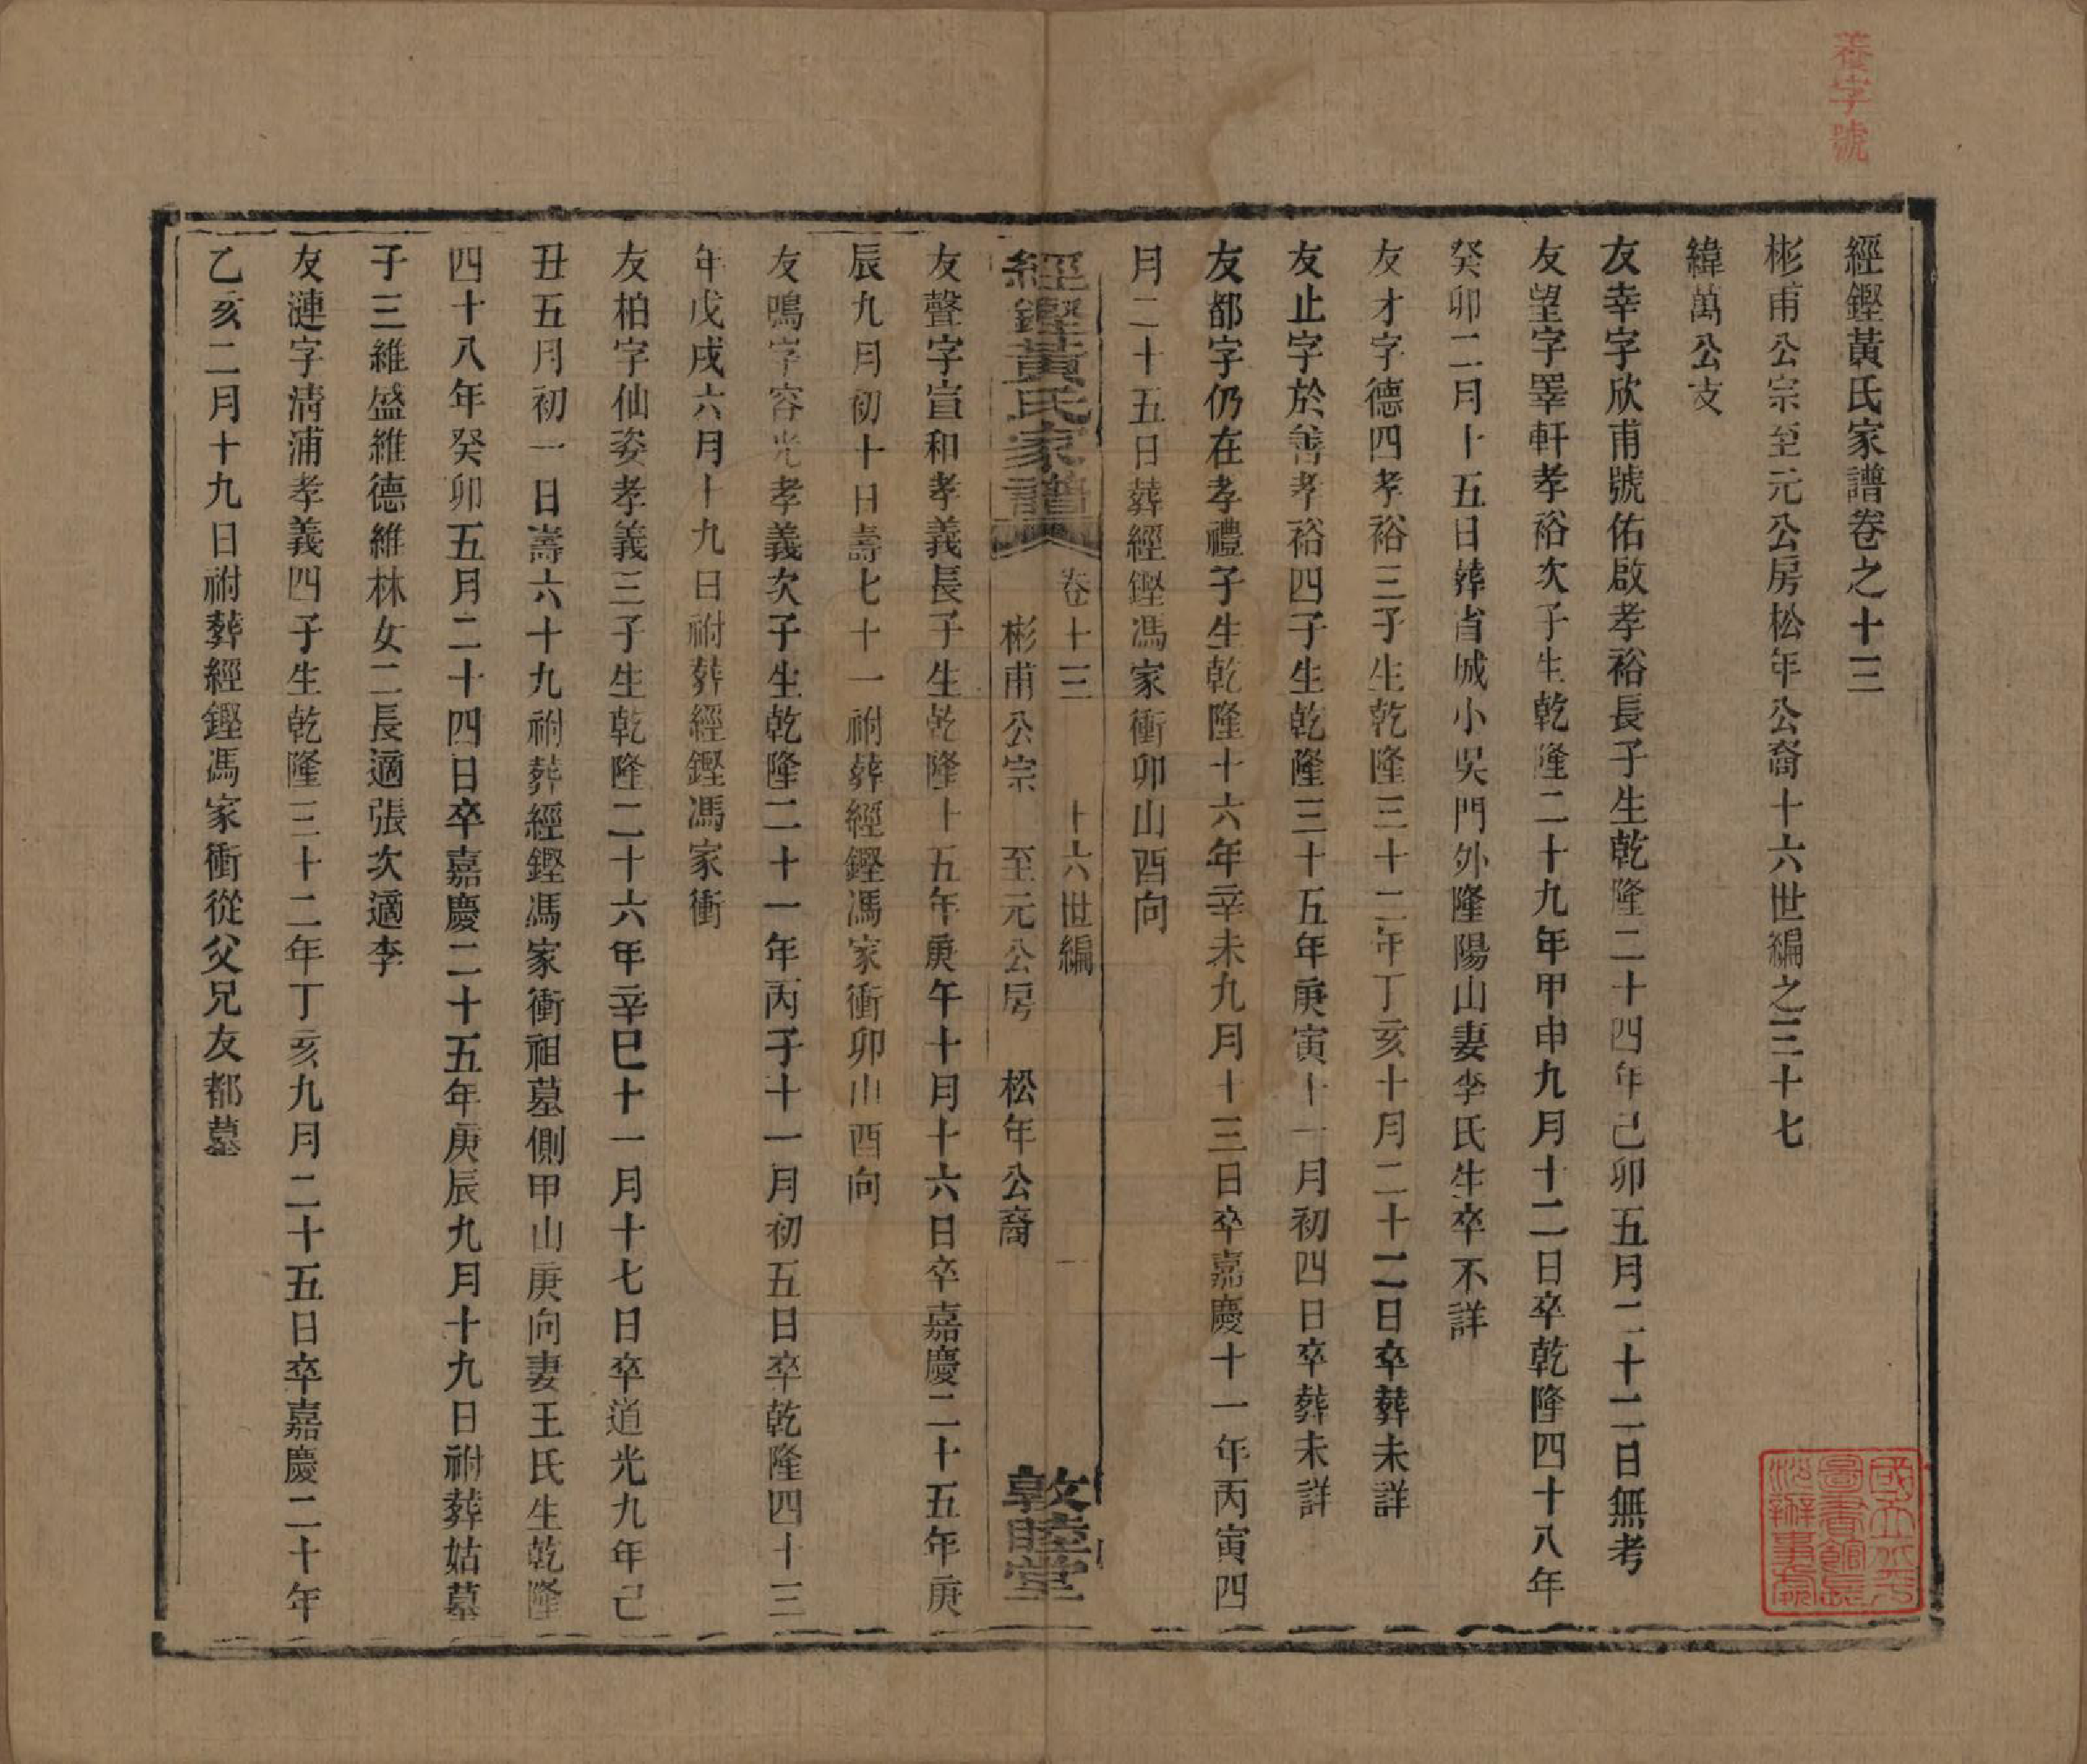 養字號
經鏗黃氏家譜卷之十三
彬甫公宗至元公房松年公裔十六世編之三十七
緯萬公支
友幸字欣甫號佑啟孝裕長子生乾隆二十四年己卯五月二十二日無考
友望字睪軒孝裕次子生乾隆二十九年甲申九月十二日卒乾隆四十八年
癸卯二月十五日葬省城小吳門外隆陽山妻李氏生卒不詳
友才字德四孝裕三子生乾隆三十二年丁亥十月二十二日卒葬未詳
友止字於善孝裕四子生乾隆三十五年庚寅十一月初四日卒葬未詳
友都字仍在孝禮子生乾隆十六年辛未九月十三日卒嘉慶十一年丙寅四
月二十五日葬經鏗馮家衝卯山酉向
經鏗黃氏家譜 卷十三 十六世編 一
彬甫公宗 至元公房 松年公裔 敦睦堂
友聲字宣和孝義長子生乾隆十五年庚午十月十六日卒嘉慶二十五年庚
辰九月初十日壽七十一祔葬經鏗馮家衝卯山酉向
友鳴字容光孝義次子生乾隆二十一年丙子十一月初五日卒乾隆四十三
年戊戌六月十九日祔葬經鏗馮家衝
友柏字仙姿孝義三子生乾隆二十六年辛巳十一月十七日卒道光九年己
丑五月初一日壽六十九祔葬經鏗馮家衝祖墓側甲山庚向妻王氏生乾隆
四十八年癸卯五月二十四日卒嘉慶二十五年庚辰九月十九日祔葬姑墓
子三維盛維德維林女二長適張次適李
友漣字清浦孝義四子生乾隆三十二年丁亥九月二十五日卒嘉慶二十年
乙亥二月十九日祔葬經鏗馮家衝從父兄友都墓
國立北平
圖書館長
沙辦事處